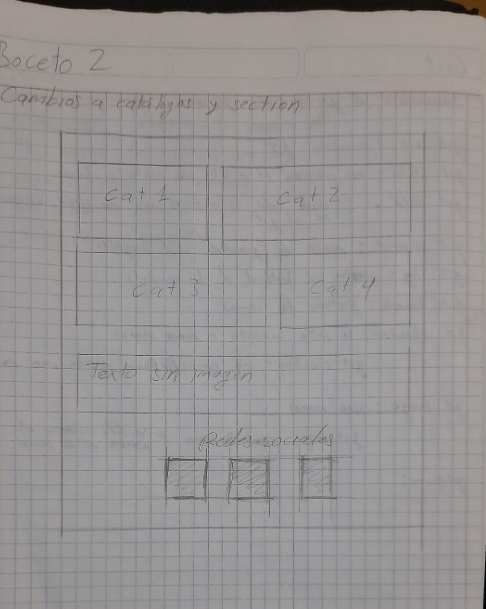 Boceto 2
Cambios a catálogos y section
Cat 1
Cat 2
Cat 3
Cat 4
Texto sin imagen
Redes sociales